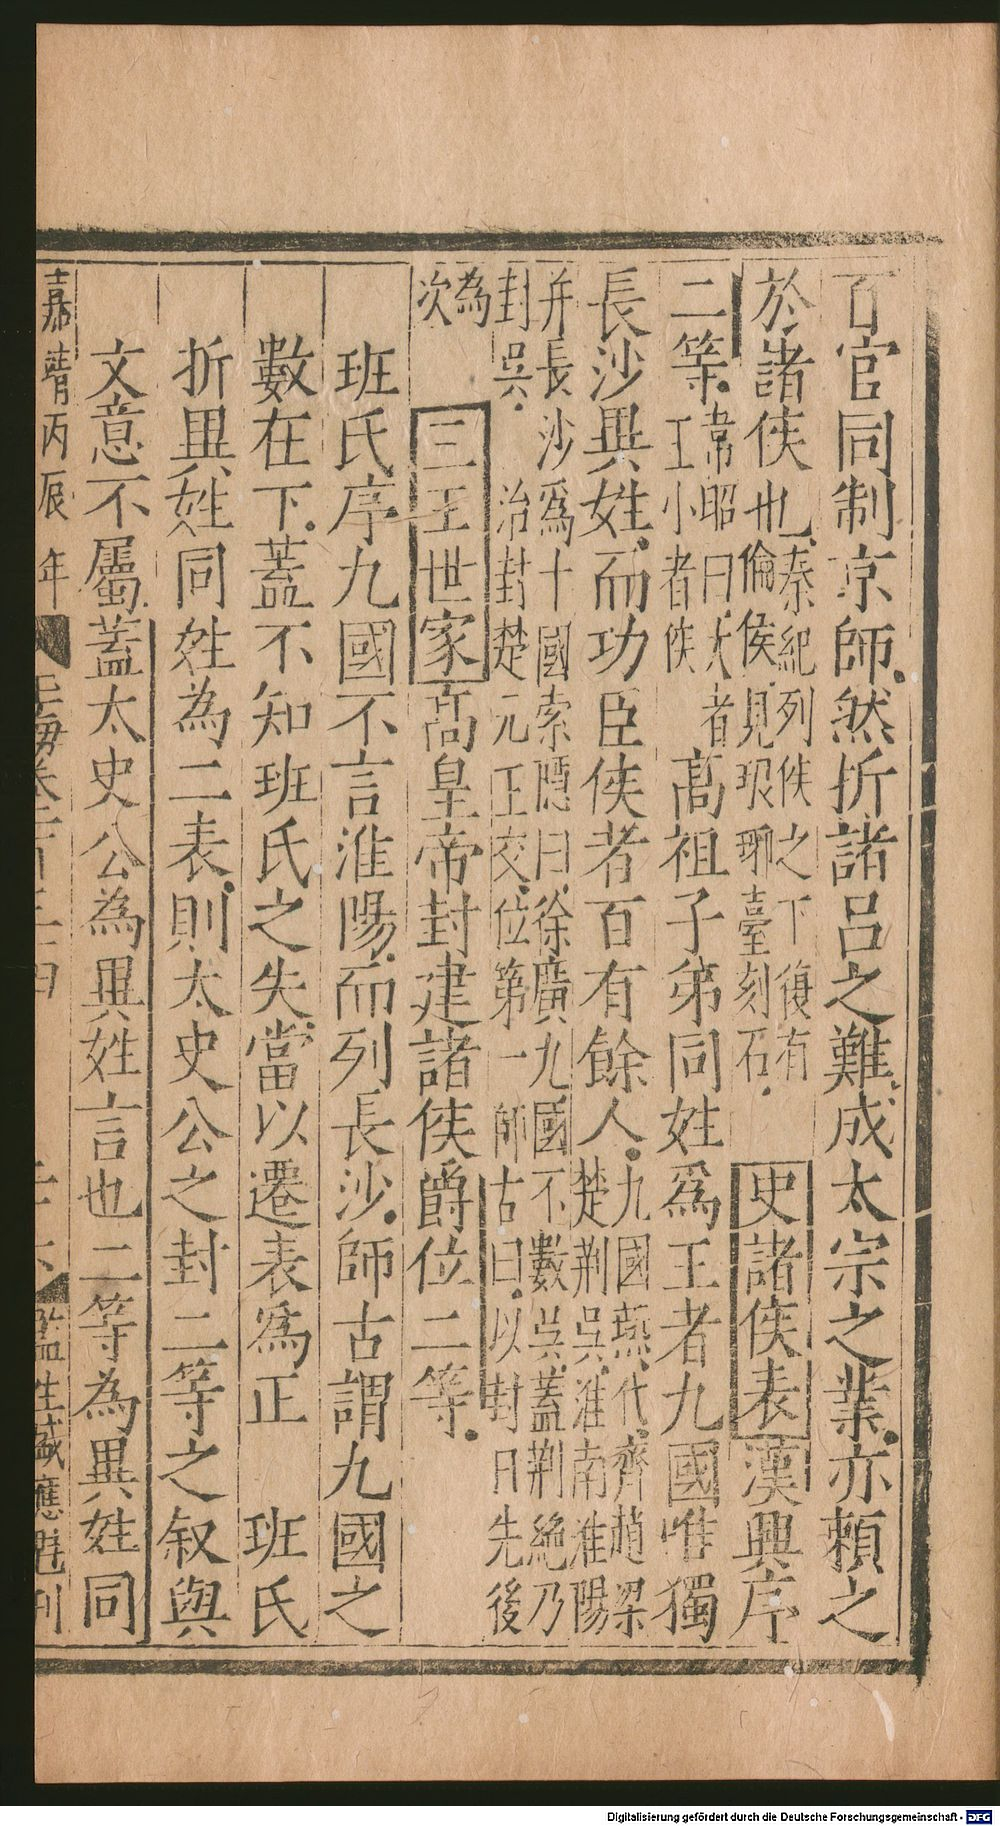 百官同制京師然折諸呂之難成太宗之業亦頼之
於諸侯也秦紀列侯之下復有倫侯見琅琊臺刻石史諸侯表漢興序
二等韋昭曰大者王小者侯高祖子弟同姓爲王者九國唯獨
長沙異姓而功臣侯者百有餘人九國燕代齊趙梁楚荆吳淮南淮陽
并長沙爲十國索隱曰徐廣九國不數吳蓋荆絶乃封吳治封楚元王交位第一師古曰以封日先後
為次三王世家高皇帝封建諸侯爵位二等
班氏序九國不言淮陽而列長沙師古謂九國之
數在下蓋不知班氏之失當以遷表爲正班氏
折異姓同姓為二表則太史公之封二等之叙與
文意不屬蓋太史公為異姓言也二等為異姓同
嘉靖丙辰年 玉海卷百三十四 監生戚應魁刊
Digitalisierung gefördert durch die Deutsche Forschungsgemeinschaft - DFG